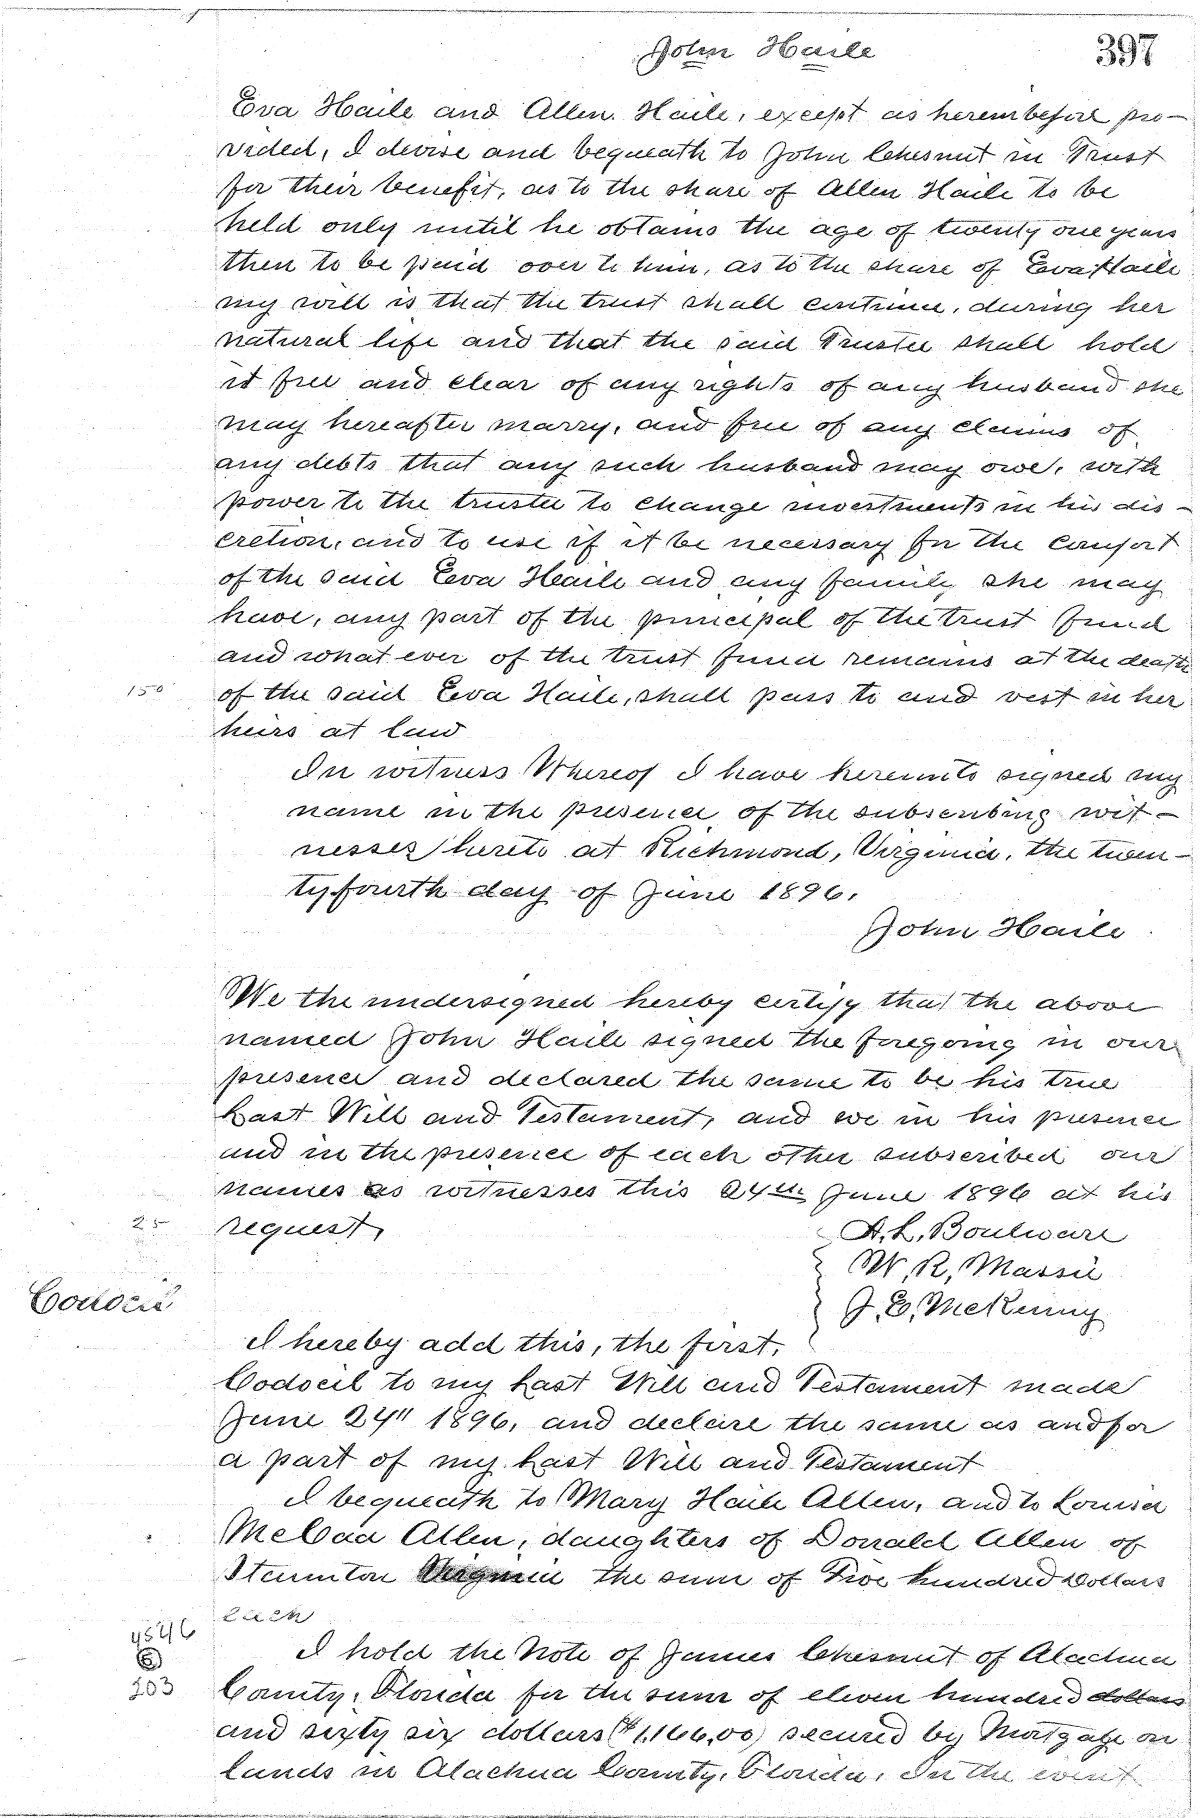 John Haile
397
Eva Haile and Allen Haile, except as hereinbefore pro-
vided, I devise and bequeath to John Chesnut in Trust
for their benefit, as to the share of Allen Haile to be
held only until he obtains the age of twenty one years
then to be paid over to him, as to the share of Eva Haile
my will is that the trust shall continue, during her
natural life and that the said Trustee shall hold
it free and clear of any rights of any husband she
may hereafter marry, and free of any claims of
any debts that any such husband may owe, with
power to the trustee to change investments in his dis-
cretion, and to use if it be necessary for the comfort
of the said Eva Haile and any family she may
have, any part of the principal of the trust fund
and what ever of the trust fund remains at the death
150 of the said Eva Haile, shall pass to and vest in her
heirs at law
In witness Whereof I have hereunto signed my
name in the presence of the subscribing wit-
nesses hereto at Richmond, Virginia, the twen-
ty fourth day of June 1896.
John Haile
We the undersigned hereby certify that the above
named John Haile signed the foregoing in our
presence and declared the same to be his true
Last Will and Testament, and we in his presence
and in the presence of each other subscribed our
names as witnesses this 24th June 1896 at his
25 request,
A. L. Boulware
W. R. Massie
J. E. McKenny
Codocil
I hereby add this, the first,
Codocil to my Last Will and Testament made
June 24" 1896, and declare the same as and for
a part of my Last Will and Testament
I bequeath to Mary Haile Allen, and to Louisa
McCaa Allen, daughters of Donald Allen of
Staunton Virginia the sum of Five hundred Dollars
each
4546
6
203
I hold the Note of James Chesnut of Alachua
County, Florida for the sum of eleven hundred dollars
and sixty six dollars ($1,166,00) secured by Mortgage on
lands in Alachua County, Florida, In the event